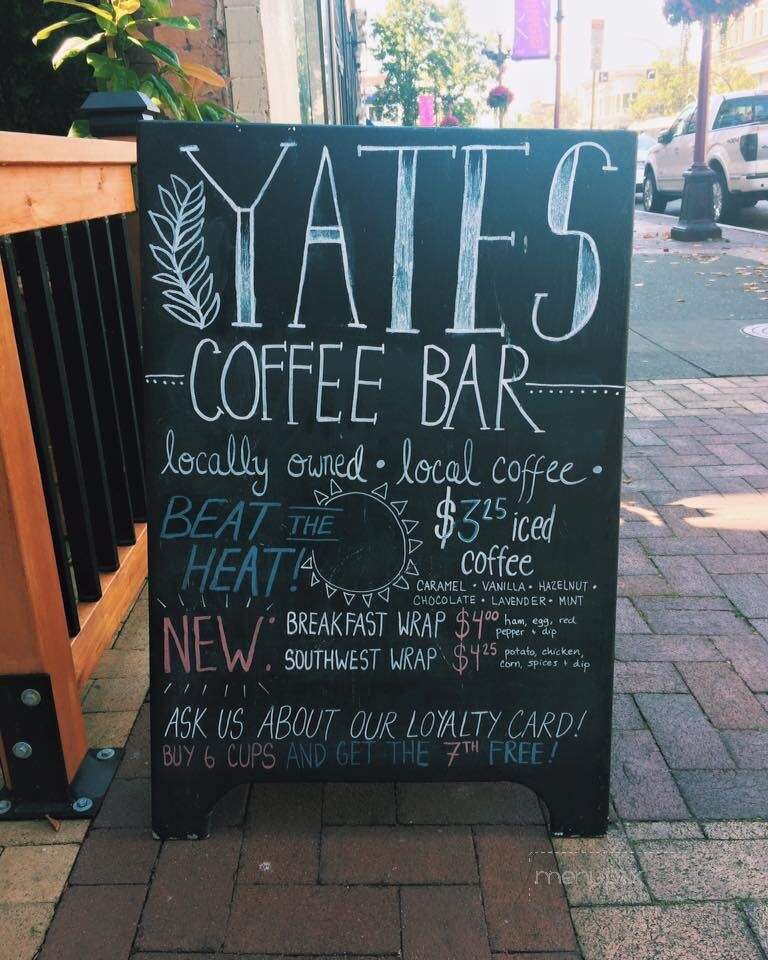 YATES
COFFEE BAR
locally owned • local coffee •
BEAT THE
HEAT!
$3.25 iced
coffee
CARAMEL • VANILLA • HAZELNUT •
CHOCOLATE • LAVENDER • MINT
NEW:
BREAKFAST WRAP $4.00 ham, egg, red
pepper + dip
SOUTHWEST WRAP $4.25 potato, chicken,
corn, spices + dip
ASK US ABOUT OUR LOYALTY CARD!
BUY 6 CUPS AND GET THE 7TH FREE!